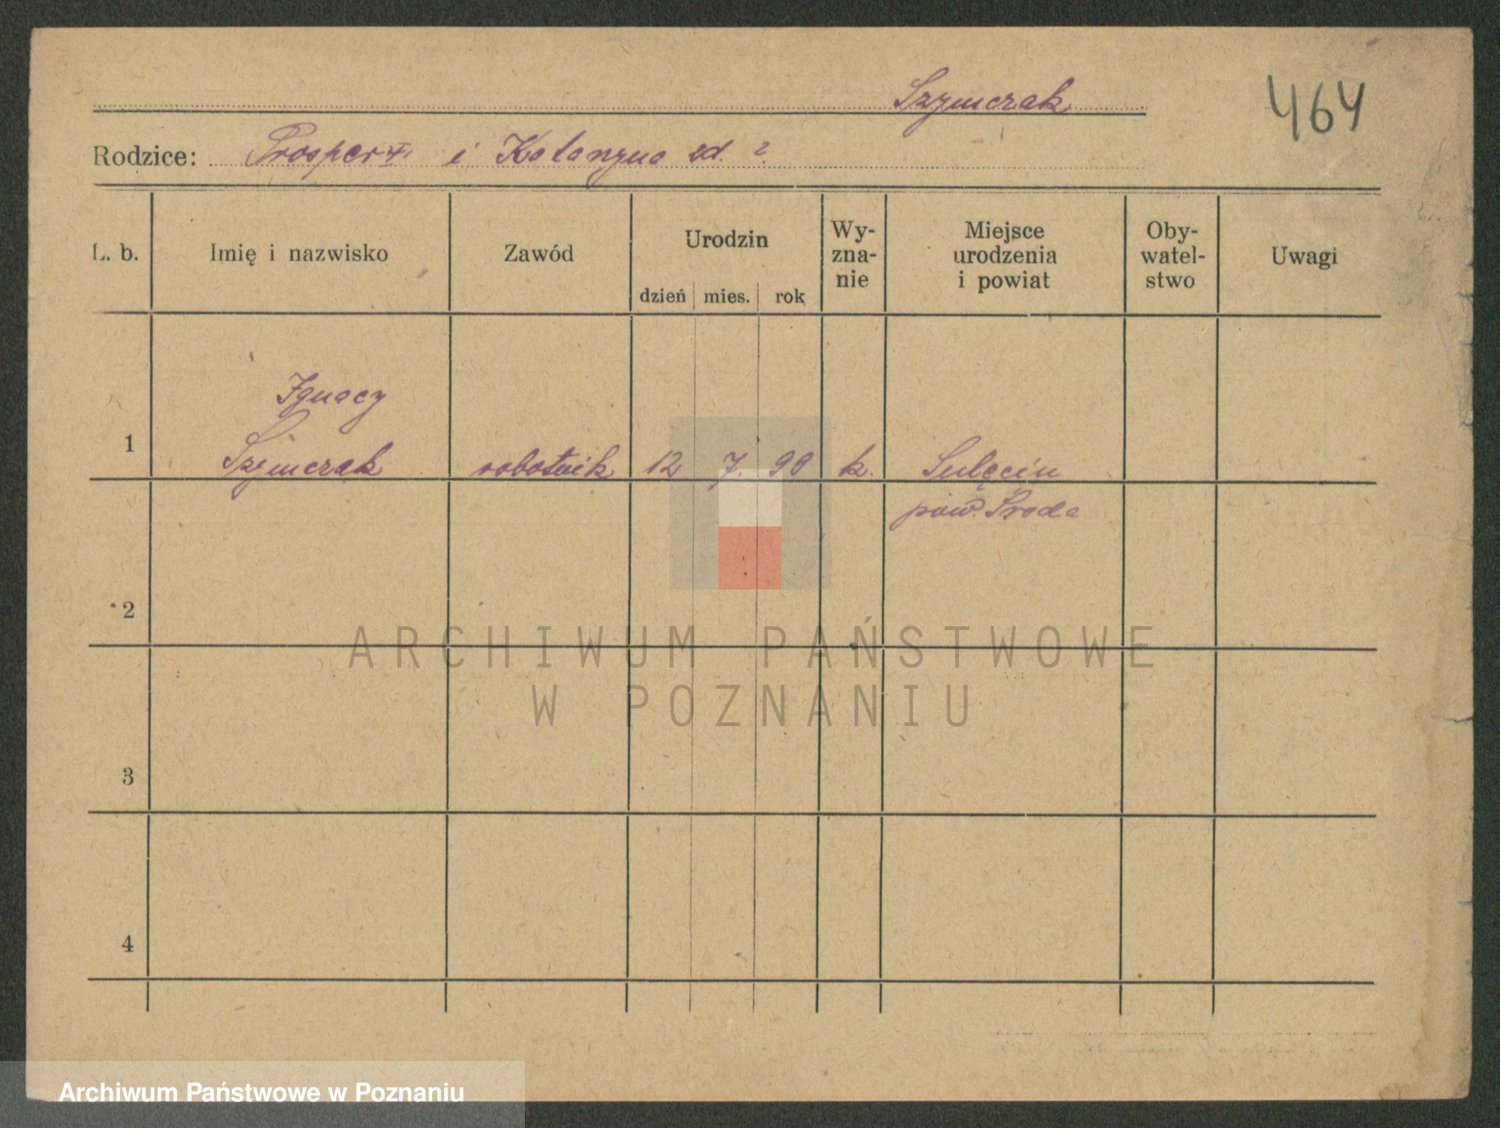 Szymczak
464
Rodzice: Prosper i Katarzyna zd. ?
L. b. Imię i nazwisko Zawód Urodzin dzień mies. rok Wy-zna-nie Miejsce urodzenia i powiat Oby-watel-stwo Uwagi
Ignacy
1 Szymczak robotnik 12 7. 90 k. Sulęcin
pow. Środa
2
3
4
ARCHIWUM PAŃSTWOWE
W POZNANIU
Archiwum Państwowe w Poznaniu